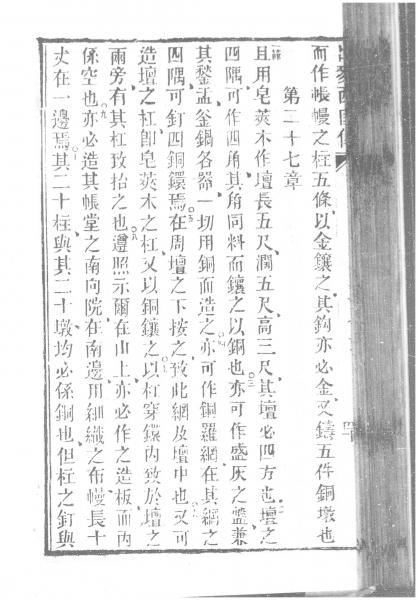 而作帳幔之柱五條以金鑲之其鈎亦必金又鑄五件銅墩也
第二十七章
且用皂莢木作壇長五尺濶五尺高三尺其壇必四方也壇之
四隅可作四角其角同料而鑲之以銅也亦可作盛灰之盤兼
其鏊盂釜鍋各器一切用銅而造之亦可作銅羅網在其網之
四隅可釘四銅鐶焉在周壇之下接之致此網及壇中也又可
造壇之杠卽皂莢木之杠又以銅鑲之以杠穿鐶內致於壇之
兩旁有其杠致抬之也遵照示爾在山上亦必作之造板而內
係空也亦必造其帳堂之南向院在南邊用細織之布幔長十
丈在一邊焉其二十柱與其二十墩均必係銅也但柱之釘與